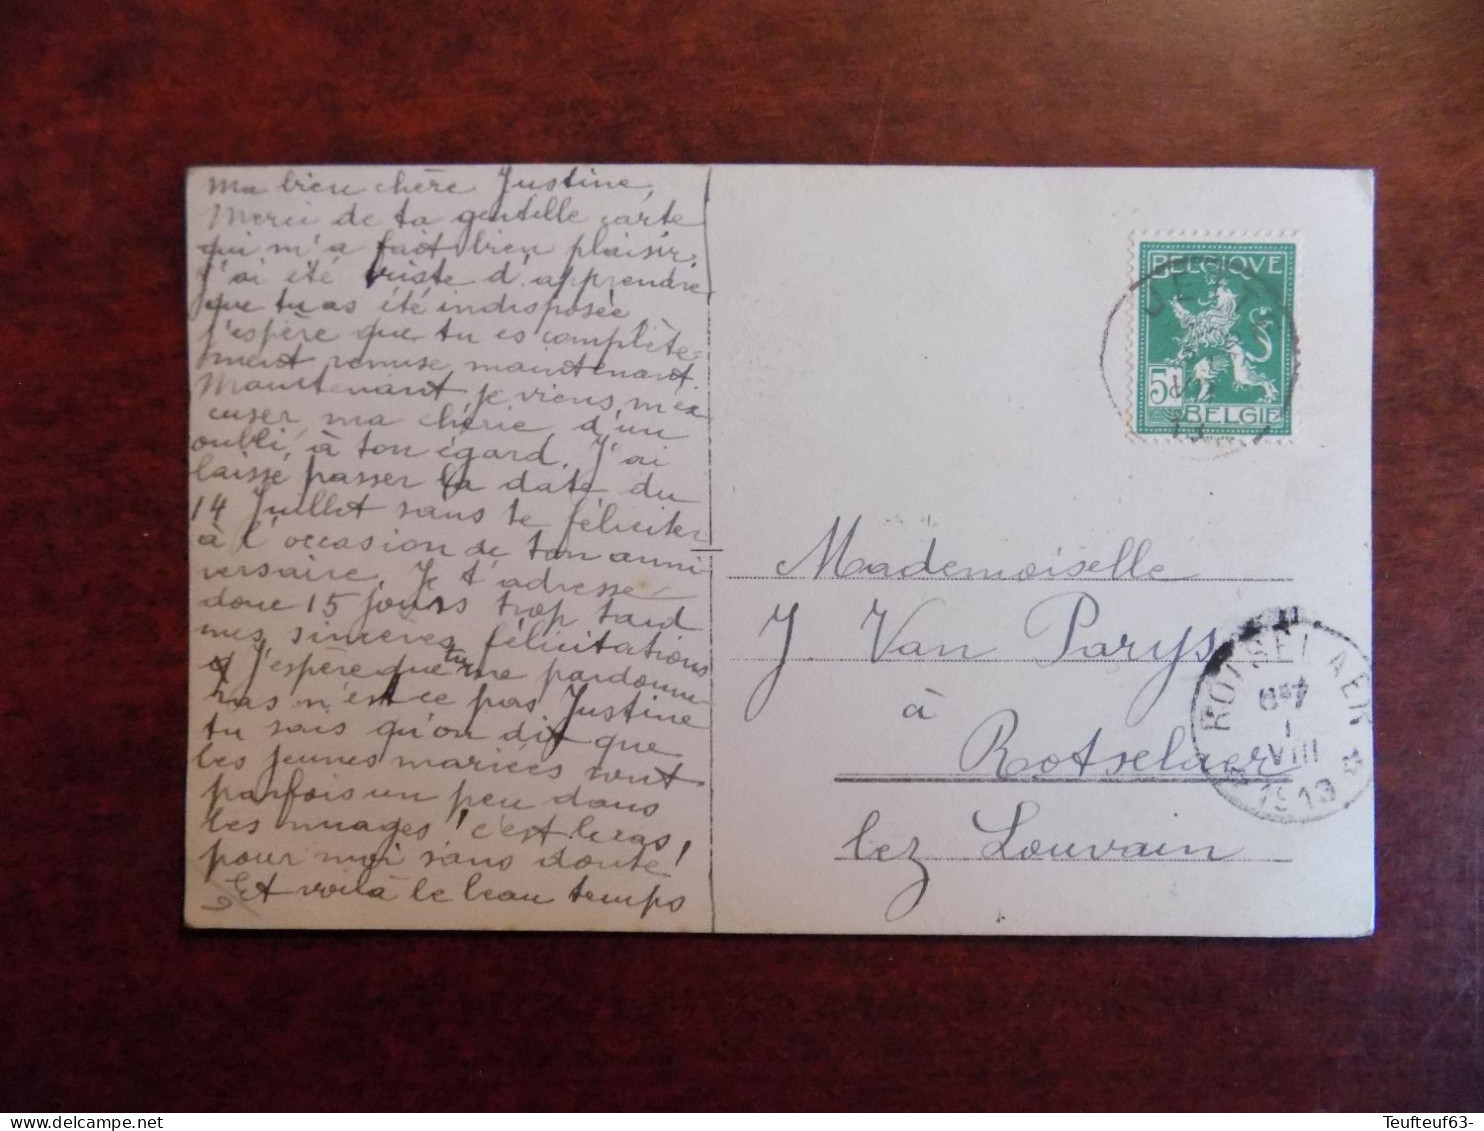 Ma bien chère Justine,
Merci de ta gentille carte
qui m'a fait bien plaisir.
J'ai été triste d'apprendre
que tu as été indisposée
j'espère que tu es complète=
ment remise maintenant.
Maintenant je viens m'ex
cuser, ma chérie, d'un
oubli, à ton égard. J'ai
laissé passer la date du
14 Juillet sans te féliciter
à l'occasion de ton anni-
versaire. Je t'adresse
donc 15 jours trop tard
mes sincères félicitations
J'espère que tu me pardonne
ras n'est ce pas Justine
tu sais qu'on dit que
les jeunes mariées sont
parfois un peu dans
les nuages! c'est le cas!
pour moi sans doute!
Et voilà le beau temps
BELGIQVE
5
BELGIE
JETTE
Mademoiselle
J. Van Parys
à
Rotselaer
lez Louvain
ROTSELAER
1
VIII
1913
Teufteuf63-